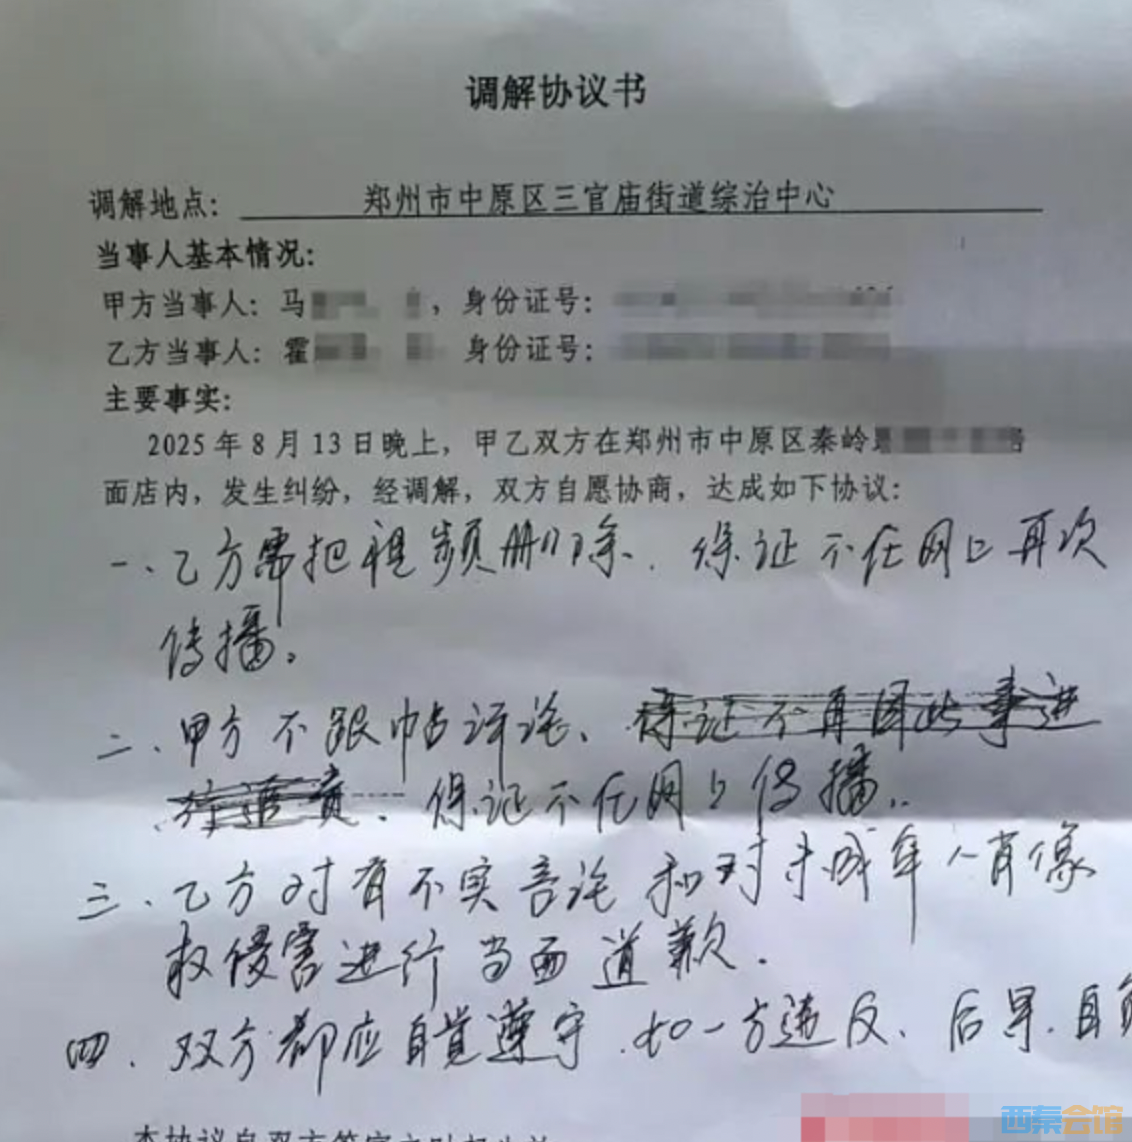 调解协议书
调解地点： 郑州市中原区三官庙街道综治中心
当事人基本情况：
甲方当事人：马 ，身份证号：
乙方当事人：霍 身份证号：
主要事实：
2025年8月13日晚上，甲乙双方在郑州市中原区秦岭
面店内，发生纠纷，经调解，双方自愿协商，达成如下协议：
一、乙方需把视频删除．保证不在网上再次
传播。
二、甲方不跟帖评论、保证不再因此事进
行追责、保证不在网上传播．
三、乙方对有不实言论和对未成年人肖像
权侵害进行当面道歉．
四、双方都应自觉遵守．如一方违反、后果．自负
本协议自双方签字之时起生效
西秦会馆